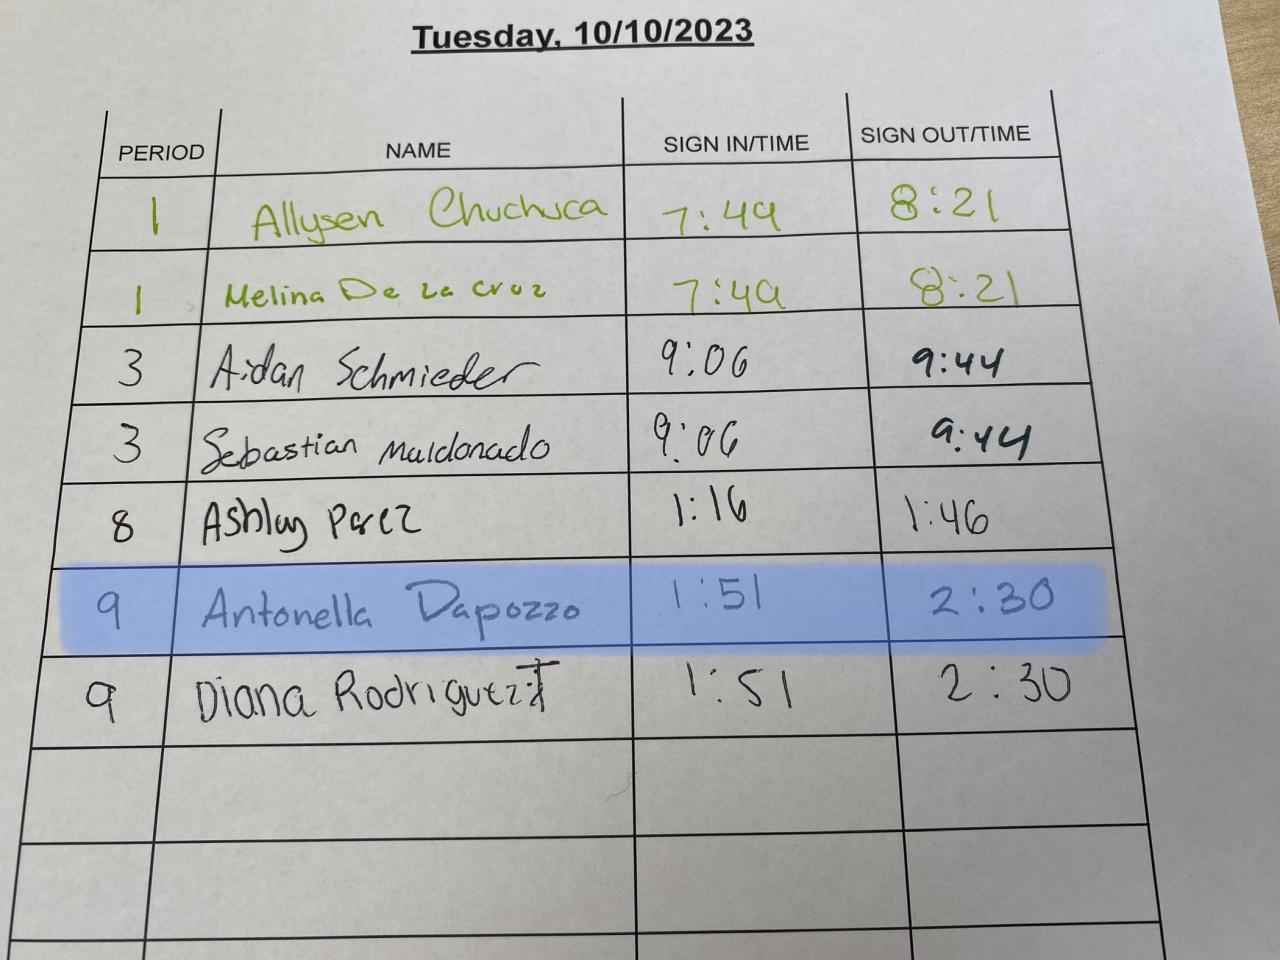 Tuesday, 10/10/2023
PERIOD NAME SIGN IN/TIME SIGN OUT/TIME
1 Allysen Chuchuca 7:49 8:21
1 Melina De La Cruz 7:49 8:21
3 Aidan Schmieder 9:06 9:44
3 Sebastian Maldonado 9:06 9:44
8 Ashley Perez 1:16 1:46
9 Antonella Dapozzo 1:51 2:30
9 Diana Rodriguez 1:51 2:30